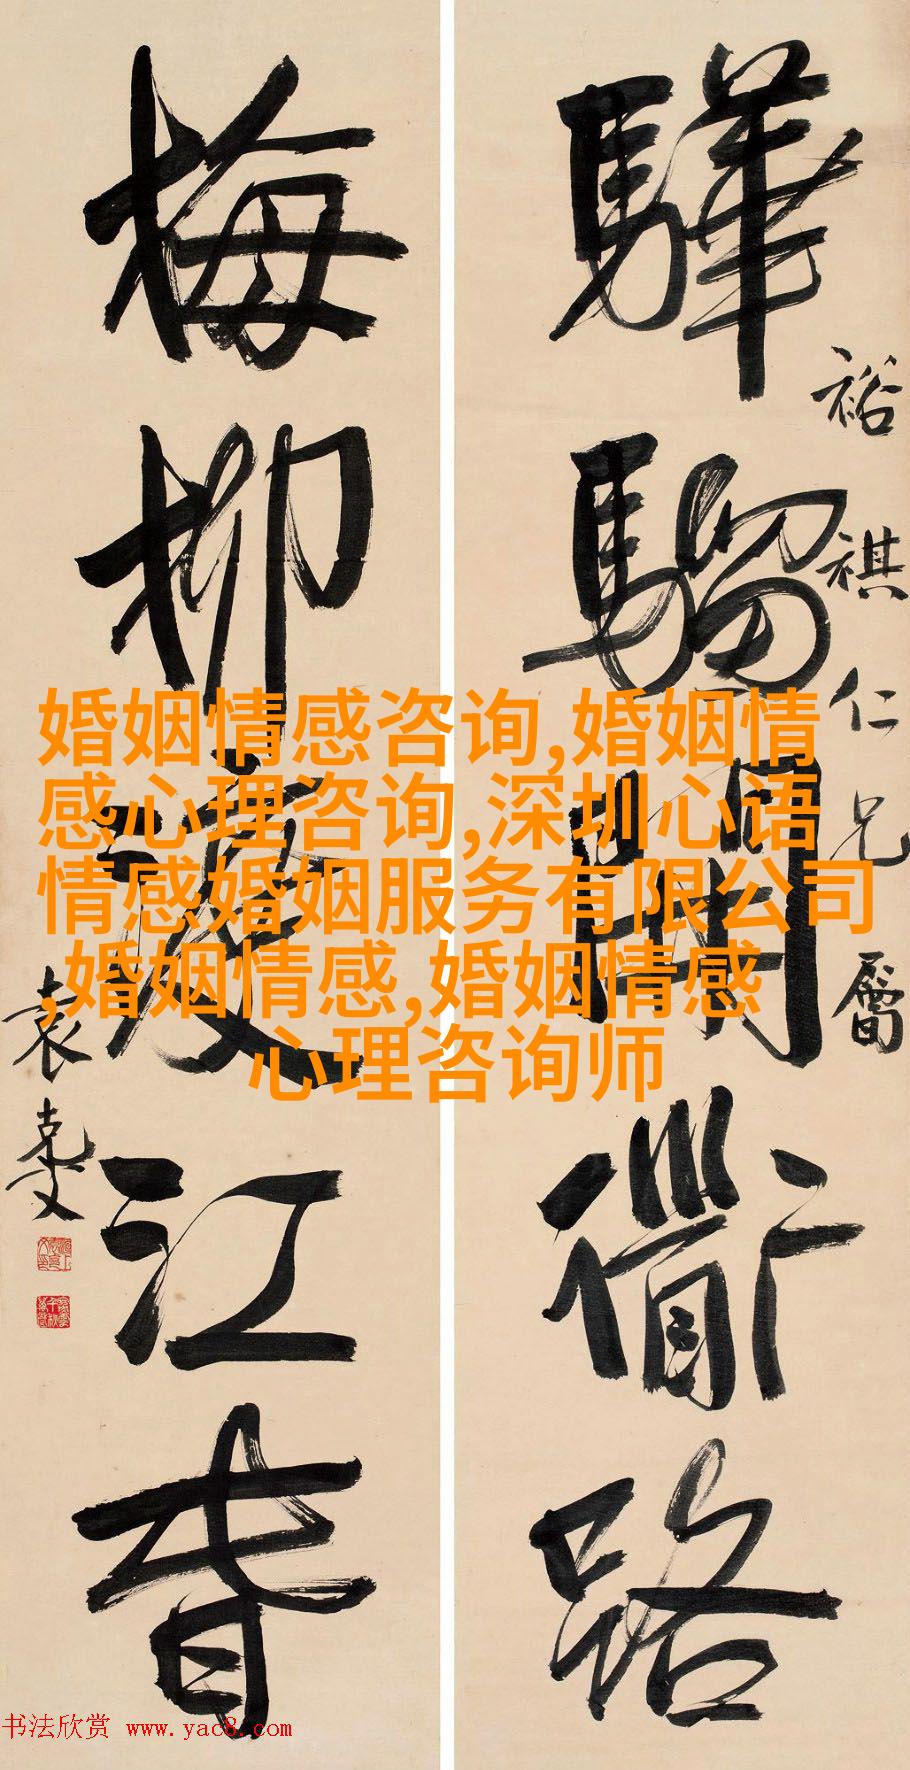 驊騮開衟路
裕祺仁兄屬
梅柳渡江春
袁克文
婚姻情感咨询,婚姻情
感心理咨询,深圳心语
情感婚姻服务有限公司
,婚姻情感,婚姻情感
心理咨询师
书法欣赏 www.yac8.com